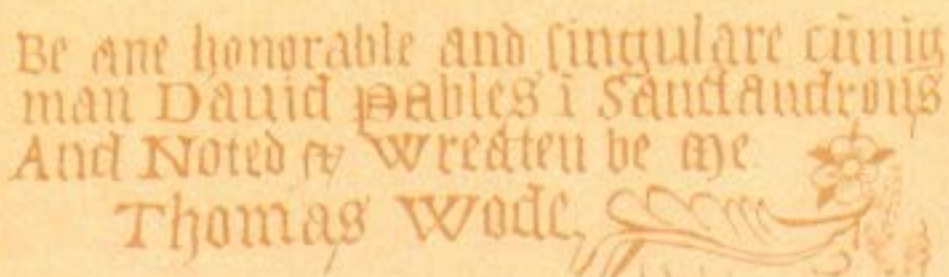 Be ane honorable and singulare cūnig
man Dauid Pables ī Sanctandrous
And Noted & Wreaten be me
Thomas Wode